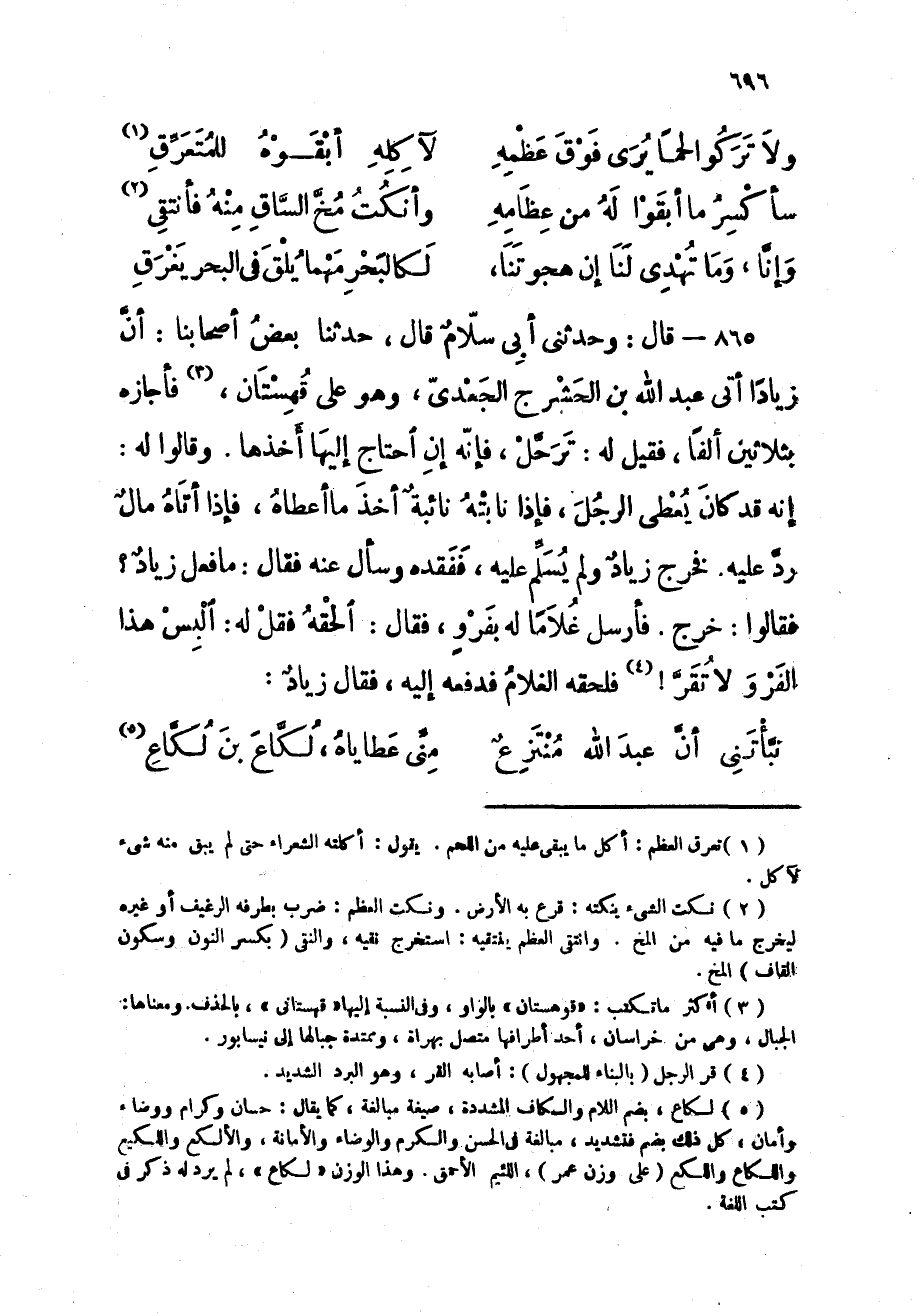 ٦٩٦
ولاَ تَرَكُوا لحمًا يُرَى فَوْقَ عَظْمِهِ لآكِلِهِ أَبْقَــوْهُ للمُتَعَرِّقِ (١)
سأكْسِرُ ما أبقَوْا لَهُ من عِظَامِهِ وأنكُتُ مُخَّ السَّاقِ مِنْهُ فأنتقِي (٢)
وَإنَّا، وَمَا تُهْدِى لَنَا إن هجوتَنَا، لَكالبَحْرِ مَهْما يُلْقَ فى البحر يَغْرَقِ
٨٦٥ – قال : وحدثنى أبِى سلاّمٌ قال ، حدثنا بعضُ أصحابنا : أنَّ
زيادًا أتى عبد الله بن الحَشْرج الجَعْدىّ ، وهو على قُهِسْتَان ، (٣) فأجازه
بثلاثين ألفًا ، فقيل له : تَرَحَّلْ ، فإنّه إن احتاج إليهَا أَخذها . وقالوا له :
إنه قد كانَ يُعْطِى الرجُلَ ، فإذا نابتْهُ نائبةٌ أخذَ ما أعطاهُ ، فإذا أتَاهُ مالٌ
ردَّ عليه. فخرج زيادٌ ولم يُسَلِّم عليه ، فَفَقده وسأل عنه فقال : ما فعل زيادٌ ؟
فقالوا : خرج . فأرسل غُلاَمًا له بفَرْوٍ ، فقال : الحقْهُ فقلْ له : اَلْبِسْ هذا
الفَرْوَ لا تُقَرَّ ! (٤) فلحقه الغلامُ فدفعه إليه ، فقال زيادٌ :
نَبَّأْتَنِى أنَّ عبدَ الله مُنْتَزِعٌ مِنَّى عَطاياهُ ، لُـكَّاعَ بنَ لُـكَّاعِ (٥)
( ١ ) تعرق العظم : أكل ما يبقى عليه من اللحم . يقول : أكلته الشعراء حتى لم يبق منه شىء
لآكل .
( ٢ ) نكت الشىء ينكته : قرع به الأرض . ونكت العظم : ضرب بطرفه الرغيف أو غيره
ليخرج ما فيه من المخ . وانتقى العظم ينتقيه : استخرج نقيه ، والنقى ( بكسر النون وسكون
القاف ) المخ .
( ٣ ) أكثر ما تكتب : «قوهستان» بالواو ، وفى النسبة إليها «قهستانى » ، بالحذف. ومعناها:
الجبال ، وهى من خراسان ، أحد أطرافها متصل بهراة ، وممتدة جبالها إلى نيسابور .
( ٤ ) قر الرجل ( بالبناء للمجهول ) : أصابه القر ، وهو البرد الشديد .
( ٥ ) لـكاع ، بضم اللام والـكاف المشددة ، صيغة مبالغة ، كما يقال : حسان وكرام ووضاء
وأمان ، كل ذلك بضم فتشديد ، مبالغة فى الحسن والـكرم والوضاء والأمانة ، والألـكع واللـكيع
واللـكاع واللـكع ( على وزن عمر ) ، اللئيم الأحمق . وهذا الوزن « لـكاع » ، لم يرد له ذكر فى
كتب اللغة .